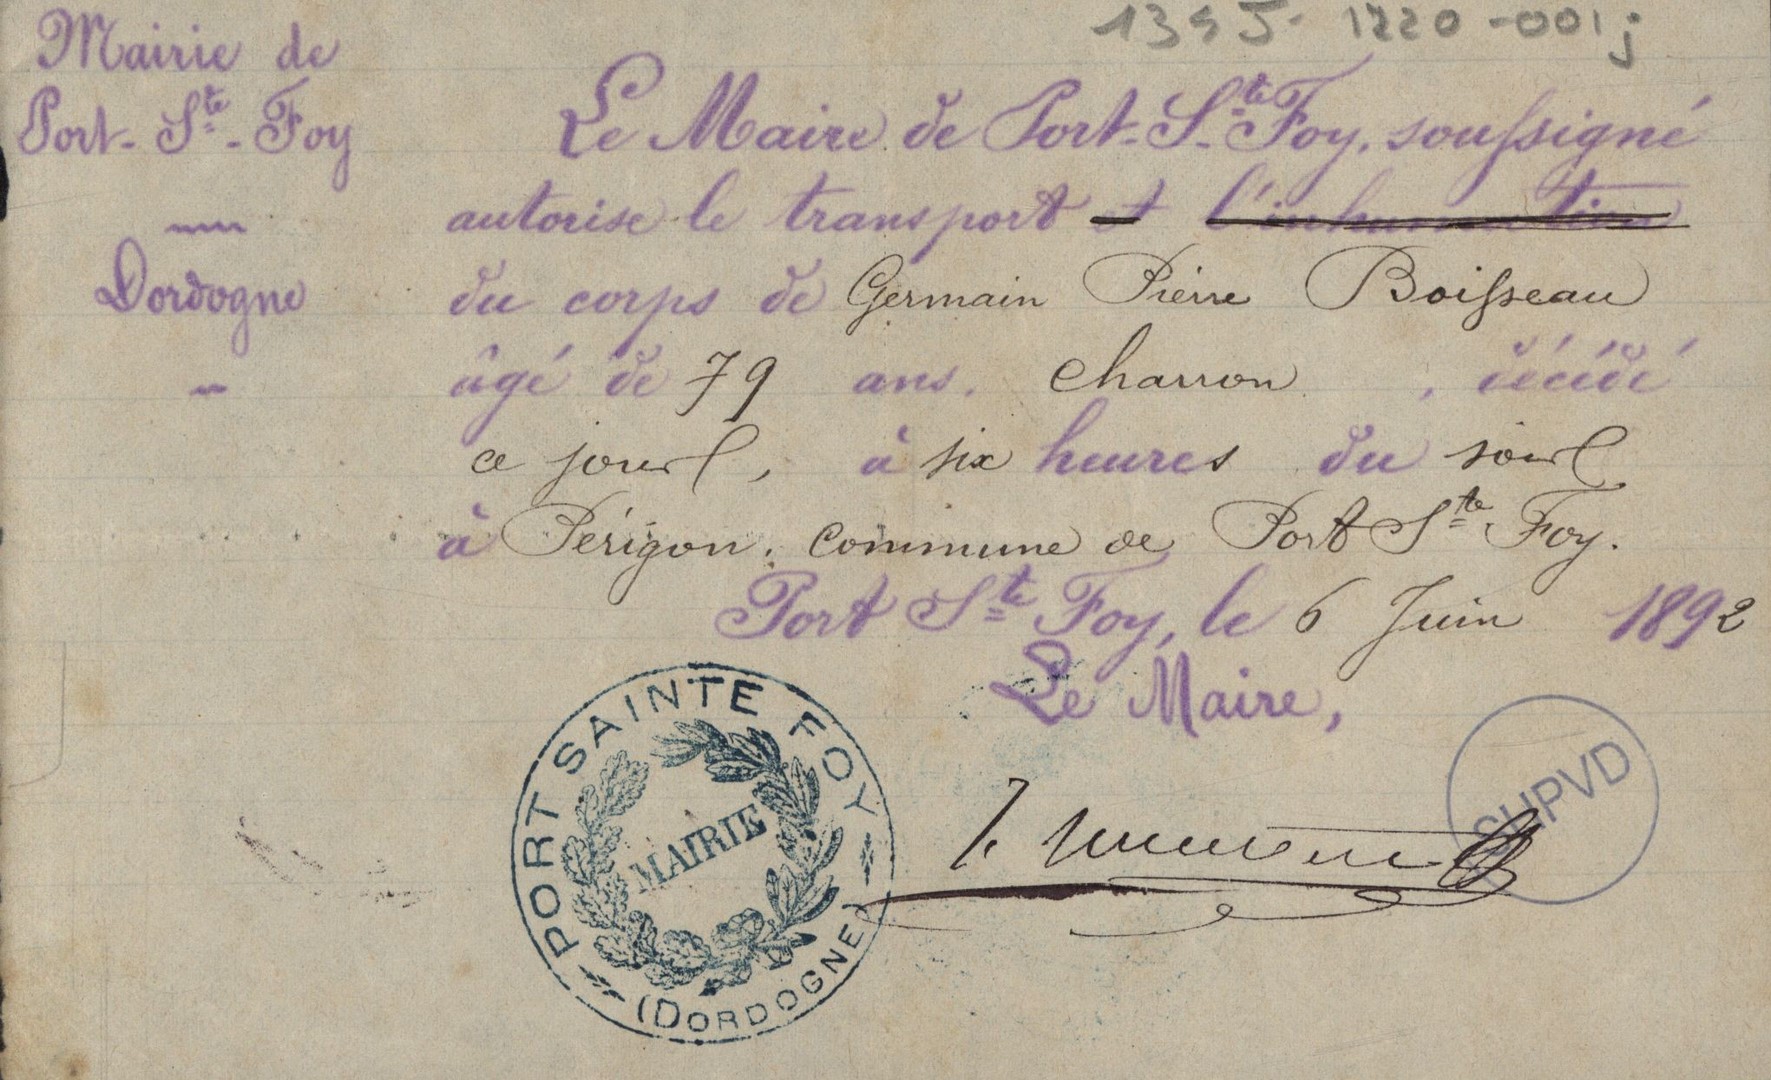 1395-1220-001j
Mairie de
Port-Ste-Foy
Dordogne
Le Maire de Port-Ste Foy, soussigné
autorise le transport et l'inhumation
du corps de Germain Pierre Boisseau
âgé de 79 ans, charron, décédé
ce jour, à six heures du soir
à Périgon, commune de Port Ste Foy.
Port Ste Foy, le 6 Juin 1892
Le Maire,
PORT SAINTE FOY
MAIRIE
(DORDOGNE)
SHPVD